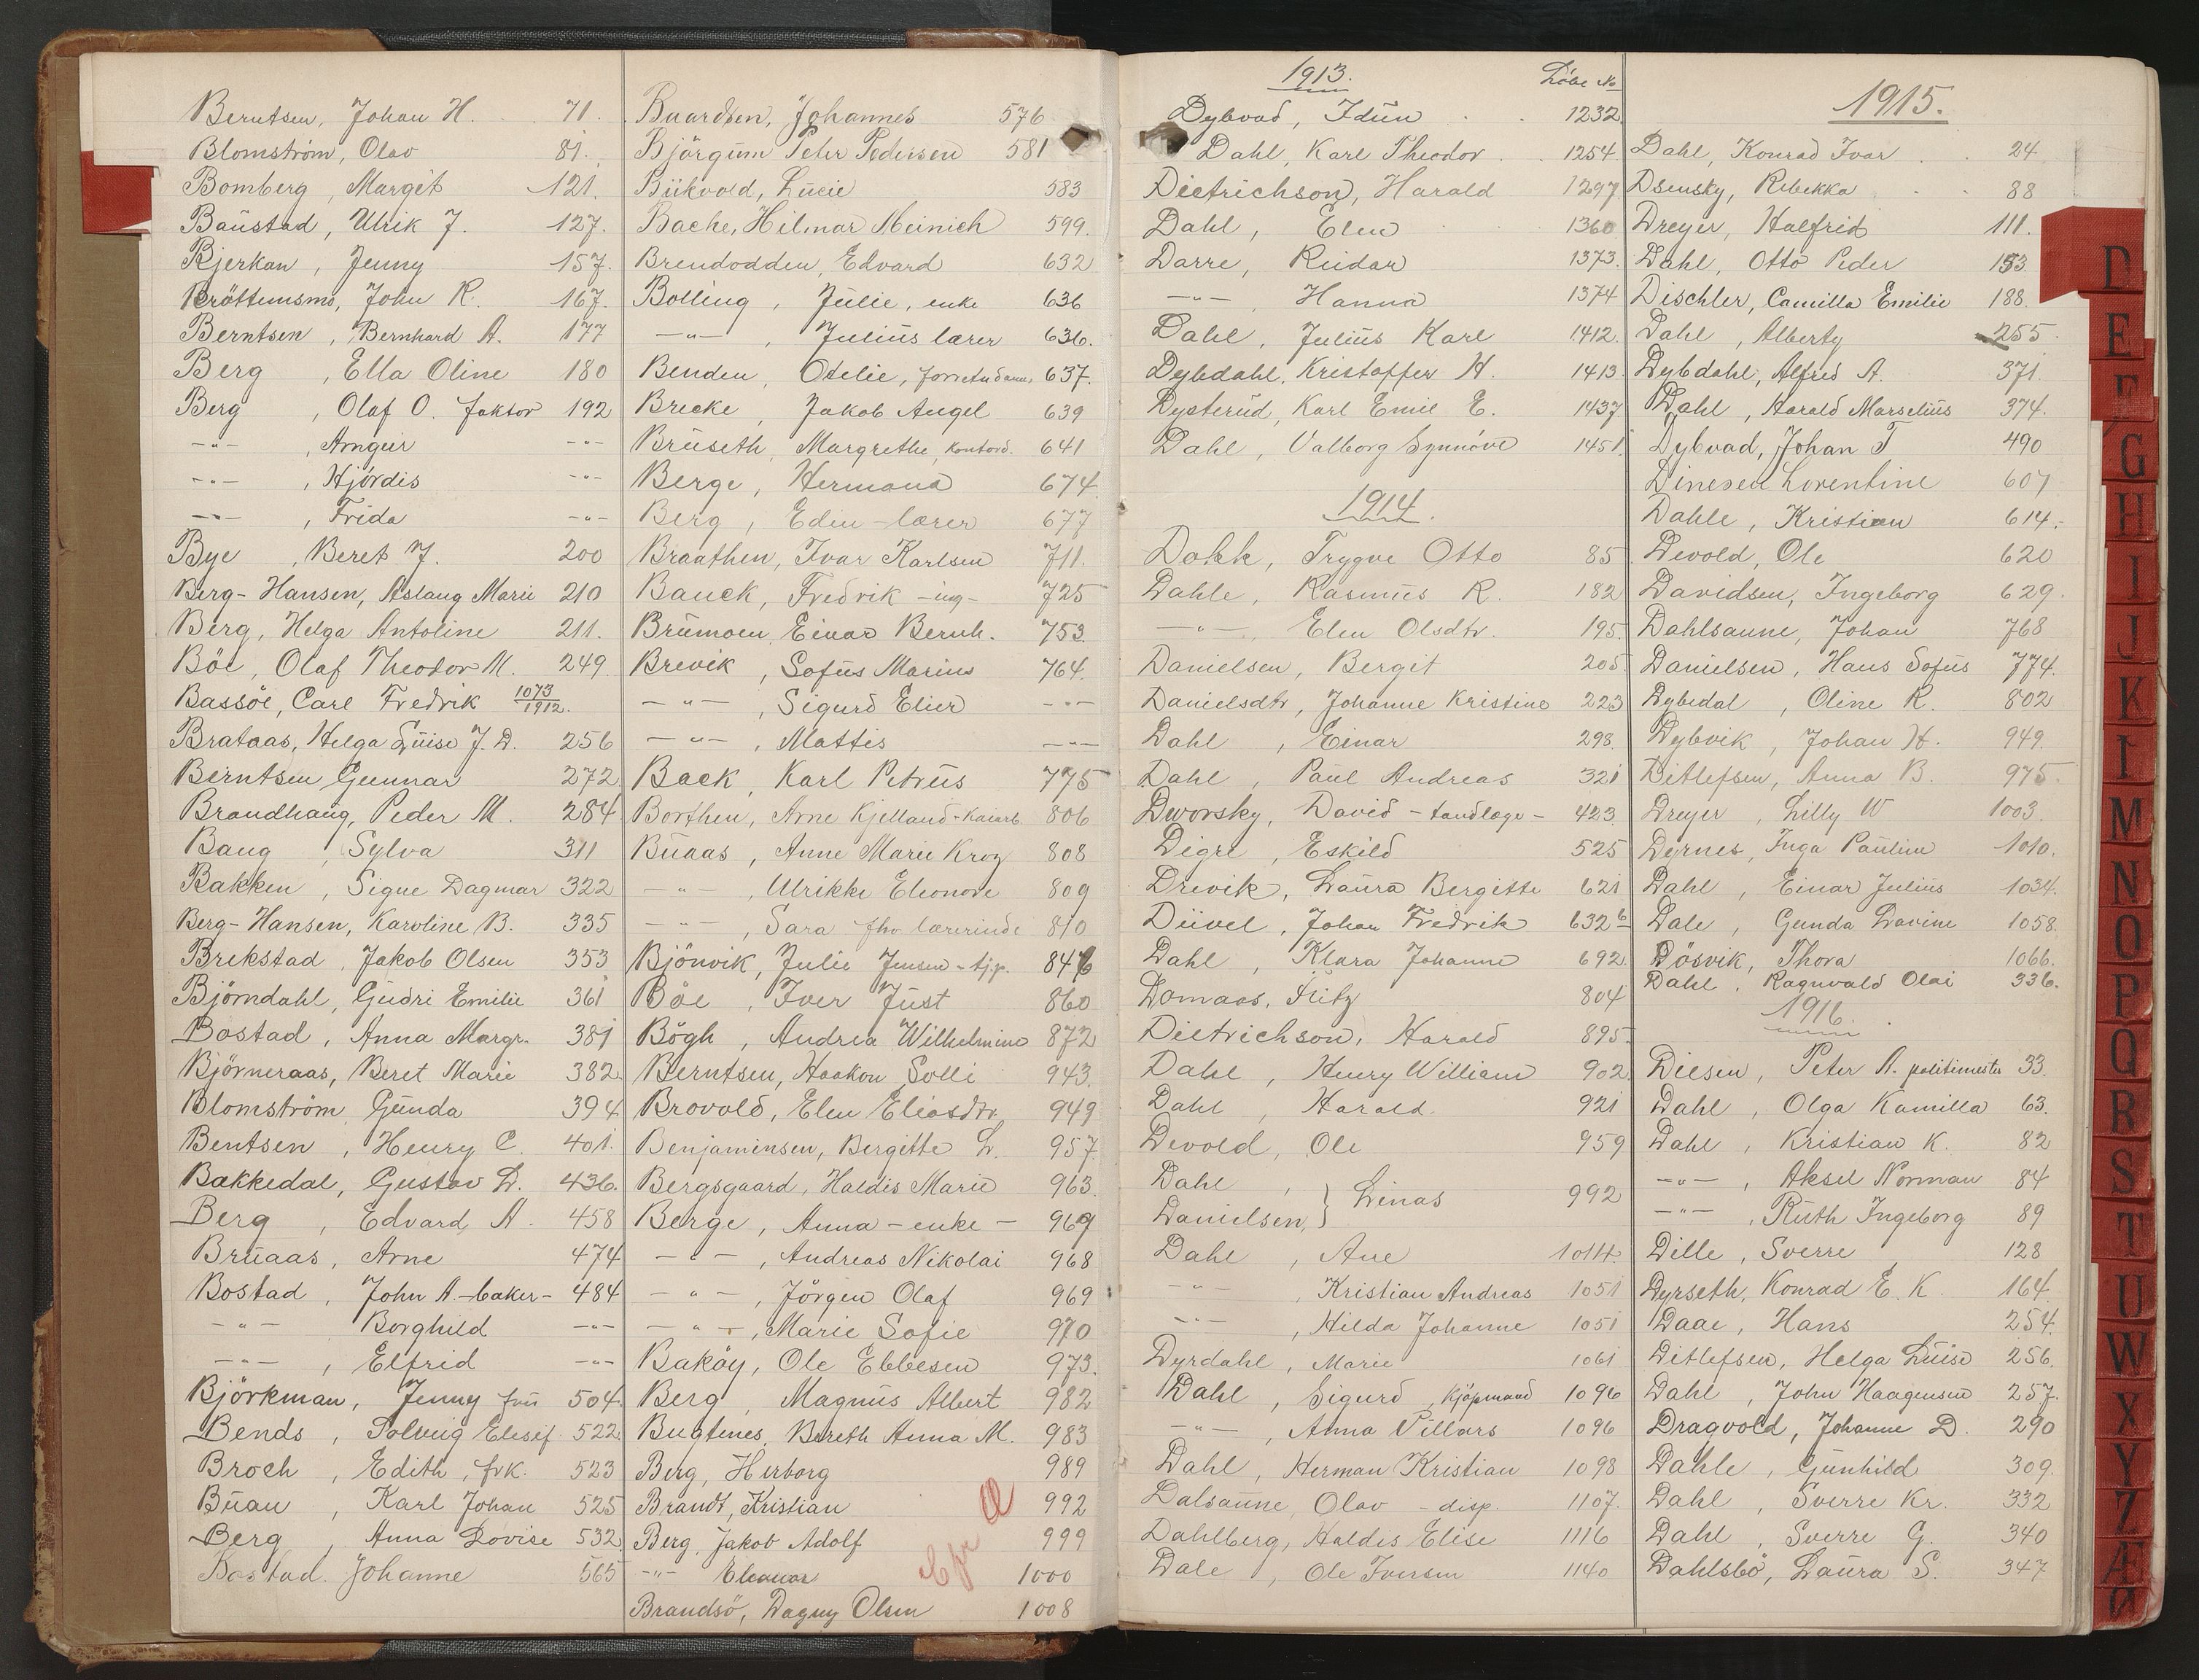 Berntsen, Johan H. 71.
Blomström, Olav 81.
Bomberg, Margit 121.
Baustad, Ulrik J. 127.
Bjerkan, Jenny 157.
Bröttemsmo, John R. 167.
Berntsen, Bernhard A. 177
Berg, Ella Oline 180
Berg, Olaf O. faktor 192
-"-, Arngeir -"-
-"-, Hjördis -"-
-"-, Frida -"-
Bye, Beret J. 200
Berg-Hansen, Aslaug Marie 210
Berg, Helga Antoline 211.
Böe, Olaf Theodor M. 249
Bassöe, Carl Fredrik 1073/1912.
Brataas, Helga Luise J. D. 256
Berntsen Gunnar 272
Brandhaug, Peder M. 284
Bang, Sylva 311
Bakken, Signe Dagmar 322
Berg-Hansen, Karoline B. 335
Brekstad, Jakob Olsen 353
Björndahl, Gudri Emilie 361
Bostad, Anna Margr. 381
Björneraas, Beret Marie 382
Blomström, Gunda 394
Bentsen, Henry C. 401.
Bakkedal, Gustav L. 436.
Berg, Edvard A. 458
Bruaas, Arne 474
Bostad, John A. - baker - 484
-"- Borghild -"-
-"-, Elfrid -"-
Björkman, Jenny fru 504.
Bends, Solveig Elesif 522
Broch, Edith, frk. 523
Buan, Karl Johan 525
Berg, Anna Lovise 532
Bostad. Johanne 565
Buardsen, Johannes 576
Björgum Peter Pedersen 581
Bükvold, Lucie 583
Bache, Hilmar Meinich 599.
Brendodden, Edvard 632
Bolling, Julie, enke 636
-"-, Julius lærer 636.
Benden, Otelie, 637.
Brecke, Jakob Angel 639
Bruseth, Margrethe, kontord. 641
Berge, Hermana 674
Berg, Edin - lærer 677
Braathen, Ivar Karlsen 711.
Bauck, Fredrik - ing - 725
Brumoen, Einar Bernh. 753.
Brevik, Sofus Marius 764.
-"-, Sigurd Elier -"-
-"-, Mattis -"-
Back, Karl Petrus 775
Borthen, Arne Kjelland - 806
Buaas, Anne Marie Krog 808
-"-, Ulrikke Eleonore 809
-"-, Sara fhv lærerinde 810
Björvik, Julie Jensen - tjp. 846
Böe, Iver Just 860
Bögh, Andrea Wilhelmine 872
Berntsen, Haakon Solli 943.
Brovold, Elen Eliasdtr. 949
Benjaminsen, Bergitte L. 957
Bergsgaard, Haldis Marie 963.
Berge, Anna - enke - 969
-"-, Andreas Nikolai 968
-"-, Jörgen Olaf 969
-"-, Marie Sofie 970
Baköy, Ole Ebbesen 973.
Berg, Magnus Albert 982
Bugtenes, Bereth Anna M. 983
Berg, Herborg 989
Brandt, Kristian 992
Berg, Jakob Adolf 999
-"- Eleanor 1000
Brandsö, Dagny Olsen 1008
Cfr a
1913. Löbe No
Dybvad, Idun 1232
Dahl, Karl Theodor 1254
Dietrichson, Harald 1297
Dahl, Elen 1360
Darre, Reidar 1373.
-"- Hanna 1374
Dahl, Julius Karl 1412.
Dybdahl, Kristoffer H. 1413.
Dysterud, Karl Emil E. 1437
Dahl, Valborg Synnöve 1451
1914.
Dokk, Trygve Otto 85
Dahle, Rasmus R. 182
-"- Elen Olsdtr. 195.
Danielsen, Bergit 205
Danielsdtr, Johanne Kristine 223
Dahl, Einar 298.
Dahl, Paul Andreas 321
Dworsky, David - tandlæge - 423
Digre, Eskild 525
Drevik, Laura Bergitte 621
Düvel, Johan Fredrik 632 b
Dahl, Klara Johanne 692.
Domaas, Fritz 804
Dietrichson, Harald 895.
Dahl, Henry William 902
Dahl, Harald 921
Devold, Ole 959
Dahl,
Danielsen, } Linas 992
Dahl, Ane 1014.
-"-, Kristian Andreas 1051
-"-, Hilda Johanne 1051
Dyrdahl, Marie 1061
Dahl, Sigurd, kjöpmand 1096
-"-, Anna Villars 1096
Dahl, Herman Kristian 1098
Dalsaune, Olav - disp. 1107.
Dahlberg, Haldis Elise 1116
Dale, Ole Iversen 1140
1915.
Dahl, Konrad Ivar 24
Dsensky, Rebekka 88
Dreyer, Halfrid 111.
Dahl, Otto Peder 153.
Dischler, Camilla Emilie 188.
Dahl, Alberty 255
Dybdahl, Alfred A. 371
Dahl, Harald Marselius 374.
Dybvad, Johan T 490
Dinesen Lorentine 607
Dahle, Kristian 614.
Devold, Ole 620
Davidsen, Ingeborg 629.
Dahlsaune, Johan 768
Danielsen, Hans Sofus 774.
Dybedal, Oline R. 802
Dybvik, Johan H. 949.
Ditlefsen, Anna B. 975.
Dreyer, Lilly W 1003.
Dyrnes, Inga Pauline 1010.
Dahl, Einar Julius 1034.
Dale, Gunda Lavine 1058.
Dösvik, Thora 1066.
Dahl, Ragnvald Olai 336.
1916.
Diesen, Peter A. politimester 33.
Dahl, Olga Kamilla 63.
Dahl, Kristian K. 82
-"-, Aksel Norman 84
-"-, Ruth Ingeborg 89
Dille, Sverre 128
Dyrseth, Konrad E. K. 164.
Daae, Hans 254.
Ditlefsen, Helga Luise 256.
Dahl, John Haagensen 257.
Dragvold, Johanne D. 290
Dahle, Gunhild 309.
Dahl, Sverre Kr. 332
Dahl, Sverre G. 340
Dahlsbö, Laura S. 347
D
E
F
G
H
I
J
K
L
M
N
O
P
Q
R
S
T
U
W
X
Y
Z
Æ
Ø